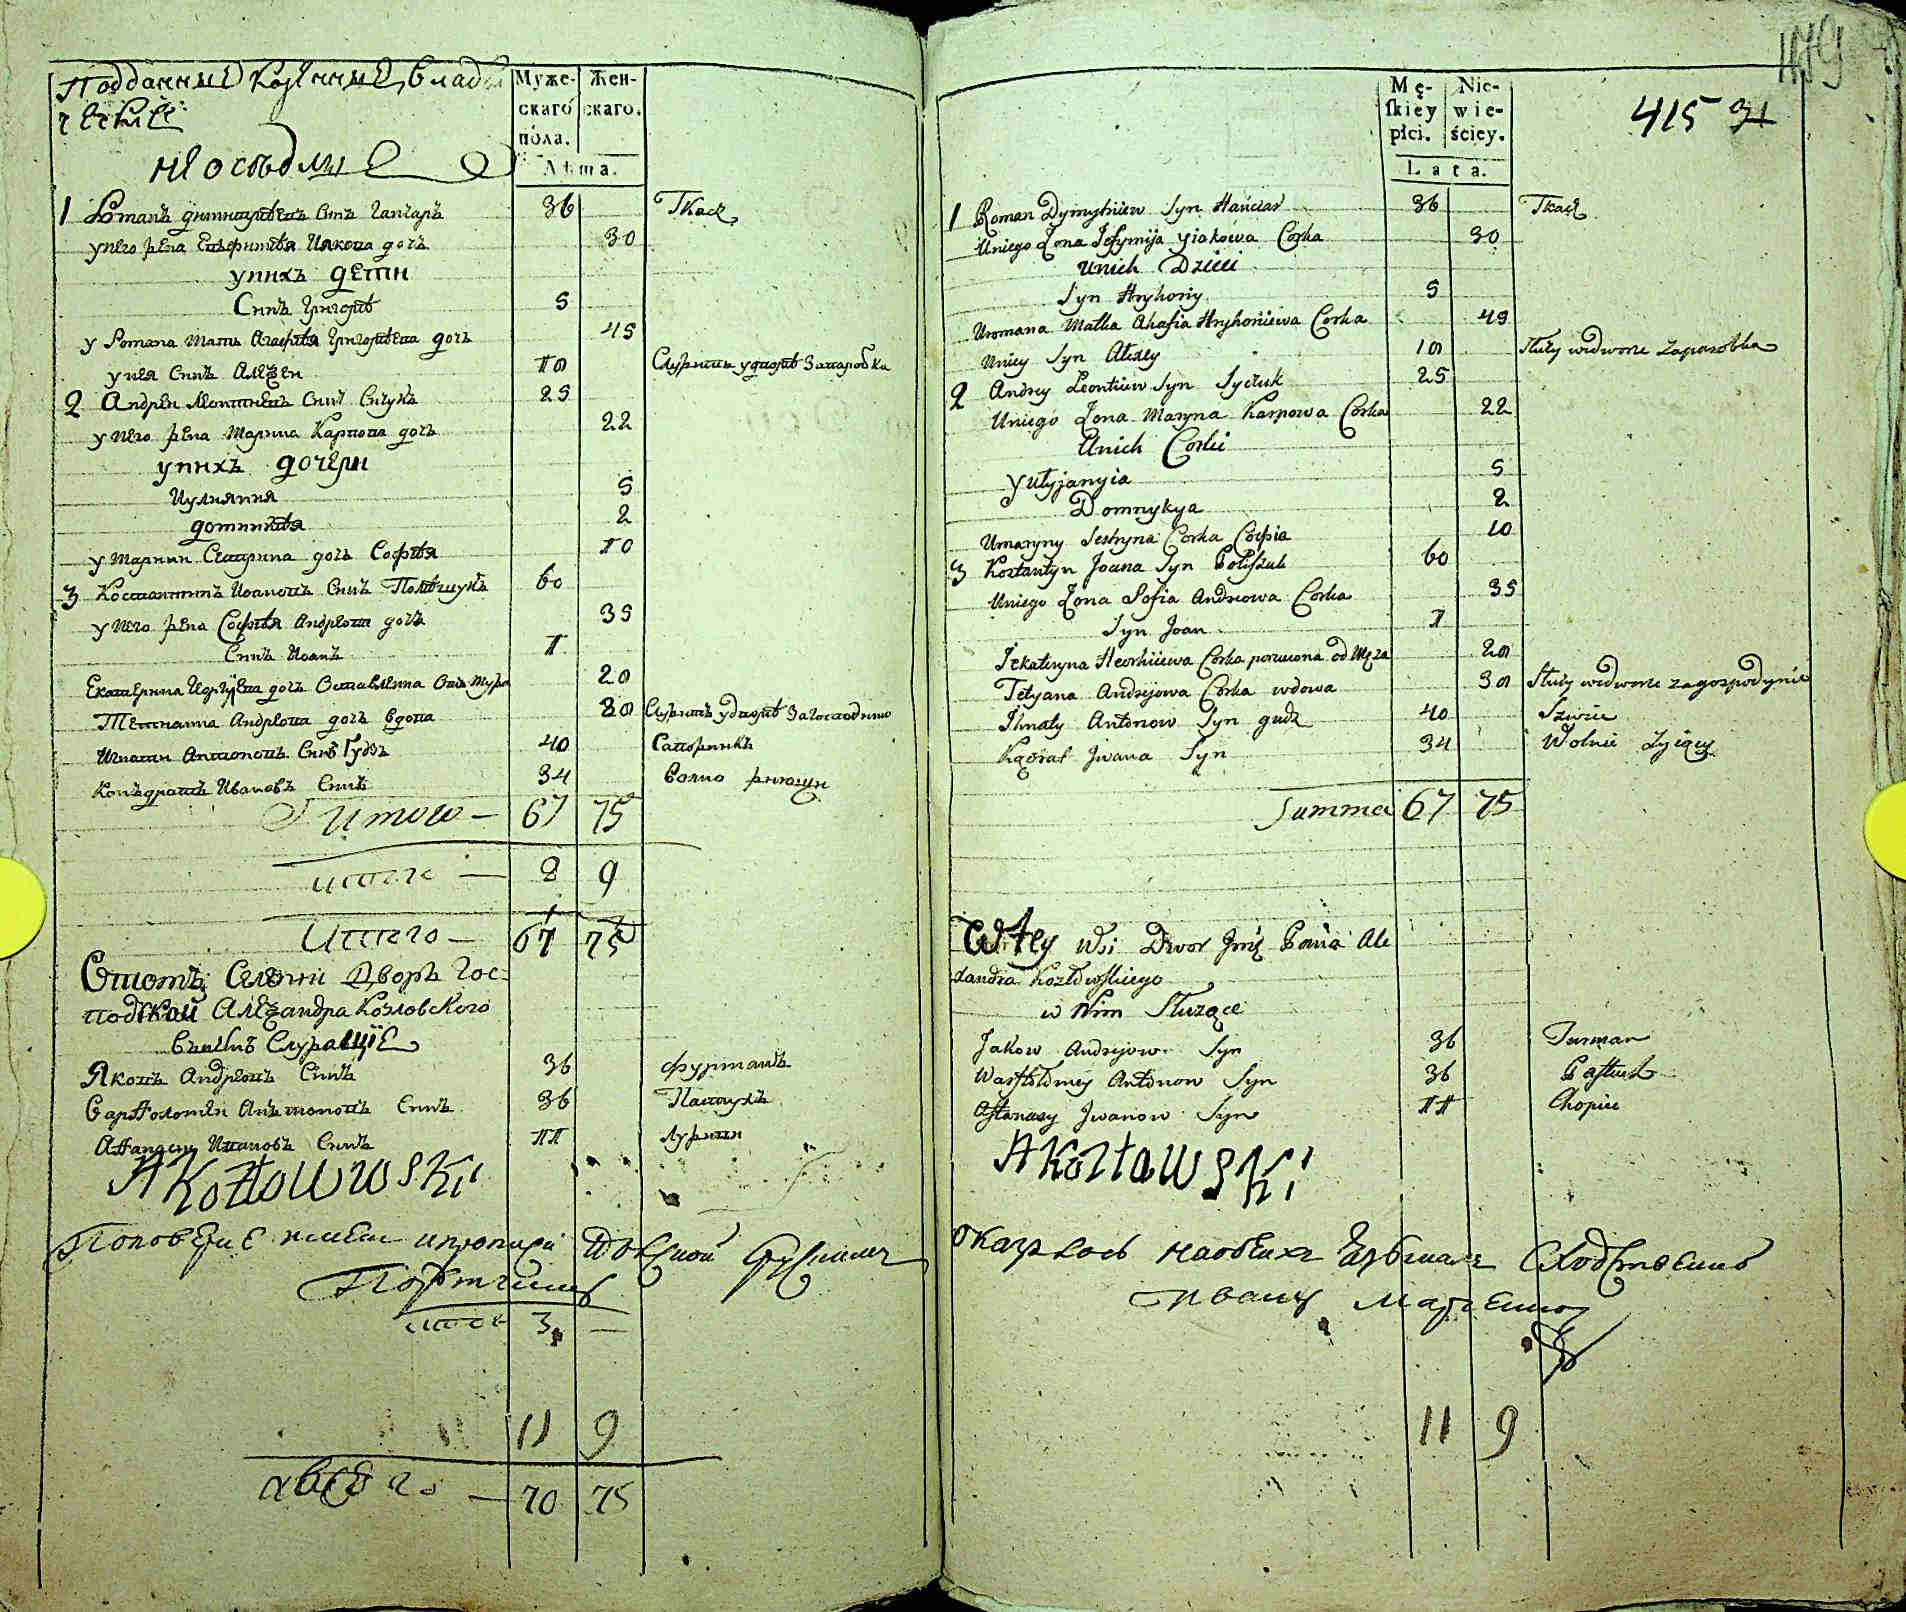 Подданные казенные, владѣ
ческие
неоседлые
Муже-
скаго
пола.
Жен-
скаго.
Лѣта.
1 Романъ Димитріевъ Синъ Ганчаръ 36 Ткач
у него жена Евфимія Иякова дочъ 30
у нихъ дети
Синъ Григорій 5
у Романа мать Агафія Григоріева дочъ 45
у нея Синъ Алеѯей 10 Служитъ у дворѣ Заларобка
2 Андрей Леонтиевъ Синъ Сичукъ 25
у него жена Марина Карпова дочъ 22
у нихъ дочери
Иулияния 5
Домникія 2
у Марини Сестрина дочъ Софія 10
3 Костантинъ Иоановъ Синъ Полѣщукъ 60
у него жена Софія Андреова дочъ 35
Синъ Иоанъ 1
Екатерина Георгіева дочъ Оставлена Отъ мужа 20
Тетиана Андреова дочъ вдова 30 Служитъ у дворѣ За господиню
Игнатий Антоновъ Синъ Гудзъ 40 Сапожникъ
Конъдратъ Ивановъ Синъ 34 Волно жиющи
Итого — 67 75
итого — 8 9
Итого — 67 75
В томъ Селении Дворъ Гос-
подской Алеѯандра Козловского
в немъ Служащіе
Яковъ Андреовъ Синъ 36 Фурманъ
Варѳоломѣй Анътоновъ Синъ 36 Пастухъ
Аѳанасий Ивановъ Синъ 11
AKozłowwski
По поверке
Порутчикъ
итого 3 —
11 9
а всего — 70 75
119
415 31
Mę-
skiey
płci.
Nie-
wie-
ściey.
Lata.
1 Roman Dymytriiew Syn Hańczar 36 Tkacz
Uniego Żona Jefymija Yiakowa Corka 30
Unich Dzieci
Syn Hryhoriy 5
Uromana Matka Ahafia Hryhoriiewa Corka 45
Uniey Syn Alexey 10 Służy wedworze Zaparobka
2 Andrey Leontiiew Syn Syczuk 25
Uniego Żona Maryna Karpowa Corka 22
Unich Corki
Yulyjanyia 5
Domnykya 2
Umaryny Sestryna Corka Cofia 10
3 Kostantyn Joana Syn Poliszuk 60
Uniego Żona Sofia Andreowa Corka 35
Syn Joan 1
Jekateryna Heorhiiewa Corka porucona od Męza 20
Tetyana Andrejowa Corka wdowa 30 Służy wedworze zagospodynie
Ihnaty Antonow Syn gudz 40 Szwiec
Kądrat Jwana Syn 34 Wolnie Żyiący
Summa 67 75
W Tey Wsi Dwor Jmć Pana Ale
xandra Kozłowskiego
w Nim Służące
Jakow Andrejow Syn 36 Furman
Warfołomey Antonow Syn 36 Pastuch
Afanasy Jwanow Syn 11 Chopiec
AKozławski
оказалось на обеихъ сходственно
11 9